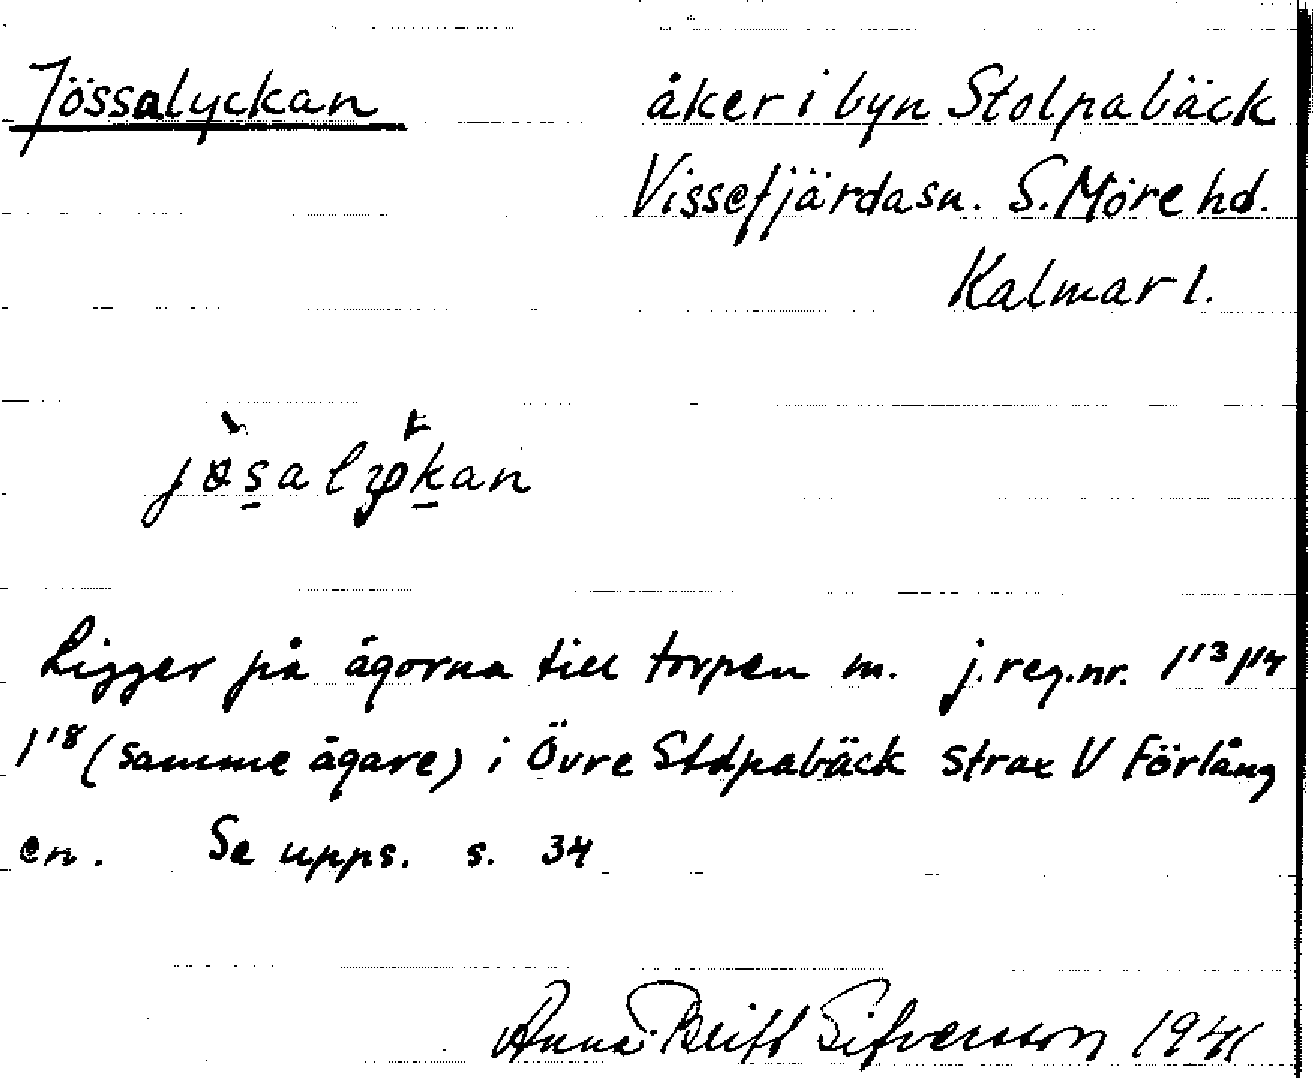 Jössalyckan åker i byn Stolpabäck
Vissefjärda sn. S. Möre hd.
Kalmar l.
Ligger på ägorna till torpen m. j.reg.nr. 1¹³ 1¹⁴
1¹⁸ (samme ägare) i Övre Stolpabäck strax V Förlång
en. Se upps. s. 34
Anna-Britt Sifversson 1941